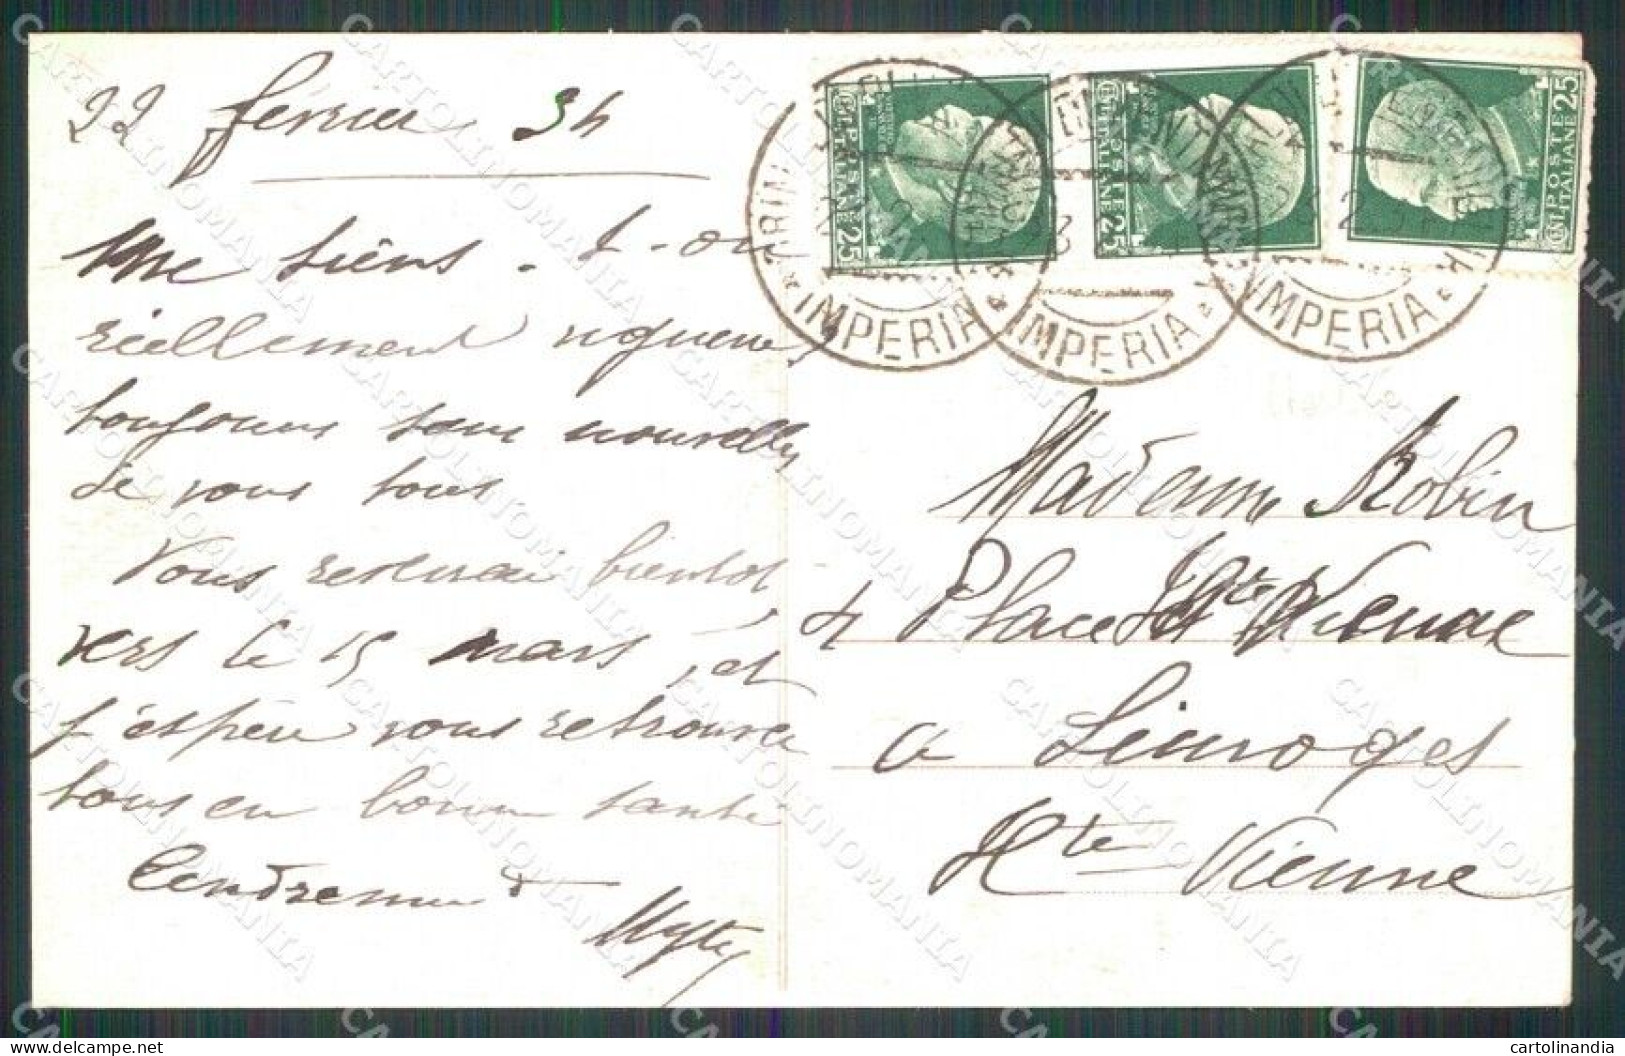 22 février 34
Me tiens - t-on
réellement rigueur,
toujours sans nouvelles
de vous tous
Vous reverrai bientôt,
vers le 15 mars, et
j'espère vous retrouver
tous en bonne santé
Tendrement
POSTE ITALIANE 25
POSTE ITALIANE 25
POSTE ITALIANE 25
IMPERIA
IMPERIA
IMPERIA
Madame Robin
4 Place Hte Vienne
a Limoges
Hte Vienne
CARTOLINOMANIA
delcampe.net
cartolinandia